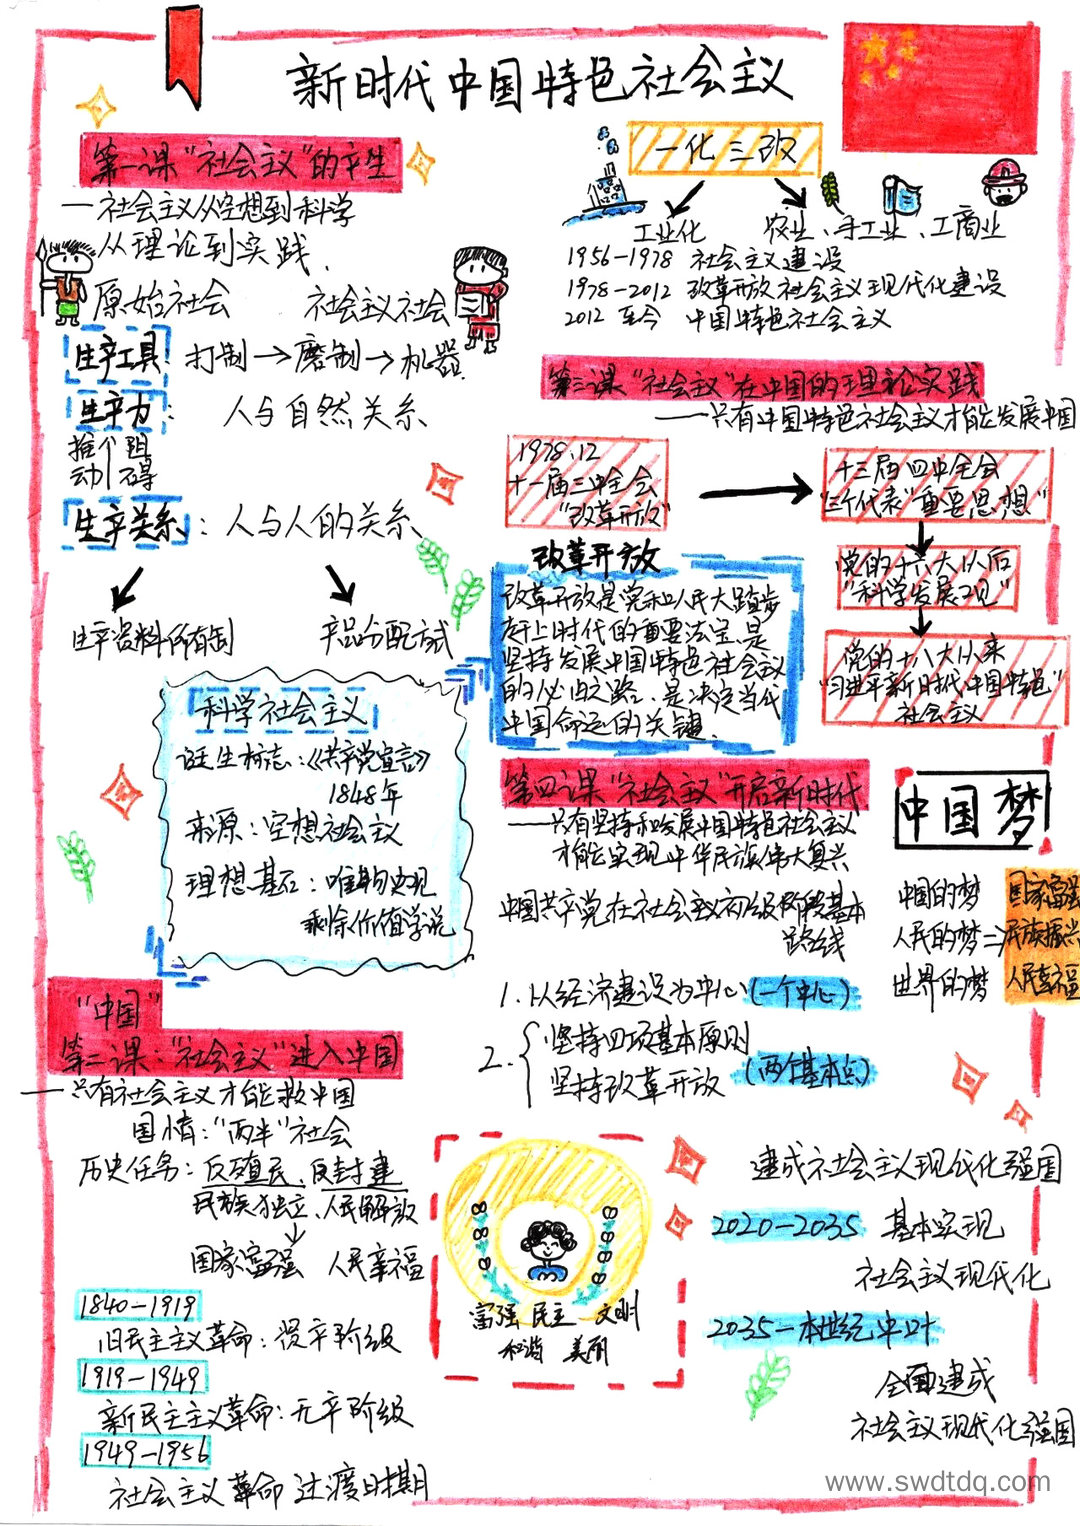 新时代中国特色社会主义
第一课“社会主义”的产生
—社会主义从空想到科学
从理论到实践.
原始社会 社会主义社会
生产工具: 打制→磨制→机器.
生产力: 人与自然关系
推个阻
动碍
生产关系: 人与人的关系
生产资料所有制 产品分配方式
科学社会主义
诞生标志:《共产党宣言》
1848年
来源: 空想社会主义
理想基石: 唯物史观
剩余价值学说
“中国”
第二课:“社会主义”进入中国
—只有社会主义才能救中国
国情:“两半”社会
历史任务: 反殖民、反封建
民族独立、人民解放
国家富强 人民幸福
1840—1919
旧民主主义革命: 资产阶级
1919—1949
新民主主义革命: 无产阶级
1949—1956
社会主义革命 过渡时期
一化三改
工业化 农业、手工业、工商业
1956—1978 社会主义建设
1978—2012 改革开放社会主义现代化建设
2012 至今 中国特色社会主义
第三课“社会主义”在中国的理论实践
——只有中国特色社会主义才能发展中国
1978.12
十一届三中全会
“改革开放”
十三届四中全会
“三个代表”重要思想”
党的十六大以后
“科学发展观”
党的十八大以来
“习近平新时代中国特色”
社会主义
改革开放
改革开放是党和人民大踏步
赶上时代的重要法宝,是
坚持发展中国特色社会主义
的必由之路、是决定当代
中国命运的关键.
第四课“社会主义”开启新时代
——只有坚持和发展中国特色社会主义
才能实现中华民族伟大复兴
中国共产党在社会主义初级阶段基本
路线
1.以经济建设为中心(一个中心)
2.{坚持四项基本原则
坚持改革开放 (两个基本点)
中国梦
中国的梦 国家富强
人民的梦=>民族振兴
世界的梦 人民幸福
富强 民主 文明
和谐 美丽
建成社会主义现代化强国
2020—2035 基本实现
社会主义现代化
2035—本世纪中叶
全面建成
社会主义现代化强国
www.swdtdq.com